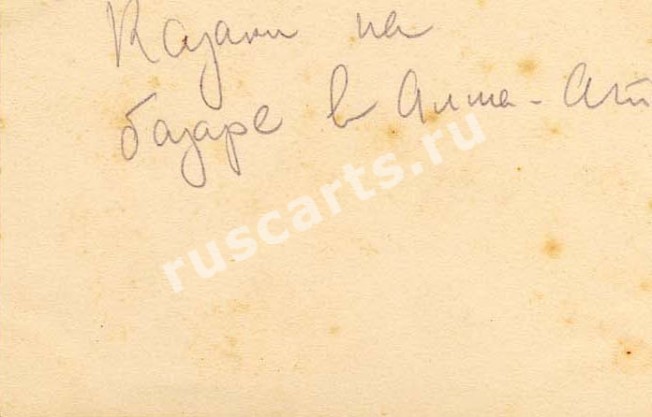 Казаки на
базаре в Алма-Ат
ruscarts.ru